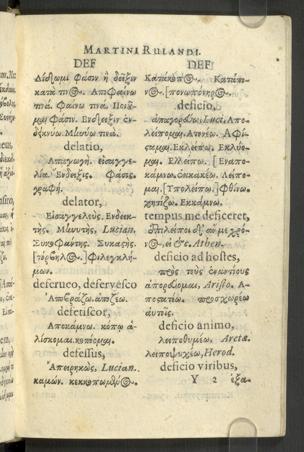 MARTINI RULANDI.
DEF
Δίδωμι φάσιν ἢ δεῖξιν
κατά τιν@. Ἀποφαίνω
τινά. Φαίνω τινά. Ποιοῦ-
μαι φάσιν. Ἔνδειξιν ἐν-
δείκνυω. Μηνύω τινά.
delatio,
Ἀπαγωγή. εἰσαγγε-
λία. Ἔνδειξις. Φάσις.
γραφή.
delator,
Εἰσαγγελεύς. Ἐνδεικ-
της. Μηνυτής, Lucian.
Συκοφάντης.
Φιλεγκλή-
μων.
deferueo, deferuesco
ἀπίζεω.
defetiscor,
Ἀποκάμνω. κόπῳ ἁ-
λίσκομαι. κοπιῶμαι.
defessus,
Ἀπειρηκώς. Lucian.
καμών.
DEF
Κατάκοπ@.
deficio,
ἀπαγορεύω, Lucet. Ἀπο-
λείπομαι. Ἀτονέω. Ἀφί-
σταμαι. Ἐκλείπω. Ἐκλύο-
μαι. Ἐλλείπω. [Ἐναπο-
κάμνω. ἐκκακέω. Λείπο-
μαι. [Ὑπολείπω.] Φθίνω.
χρηίζω. Ἐκκάμνω.
tempus me deficeret,
ἐπιλείποι ἄν με χρό-
ν@, εἰ &c. Athen.
deficio ad hostes,
πρὸς τοὺς ἐναντίους
Aristo. Ἀ-
ποστατέω. προσχωρέω
αὐτοῖς.
deficio animo,
λειποθυμέω. Aretæ.
λειποψυχέω, Herod.
deficio viribus,
Y 2 ἐξα-